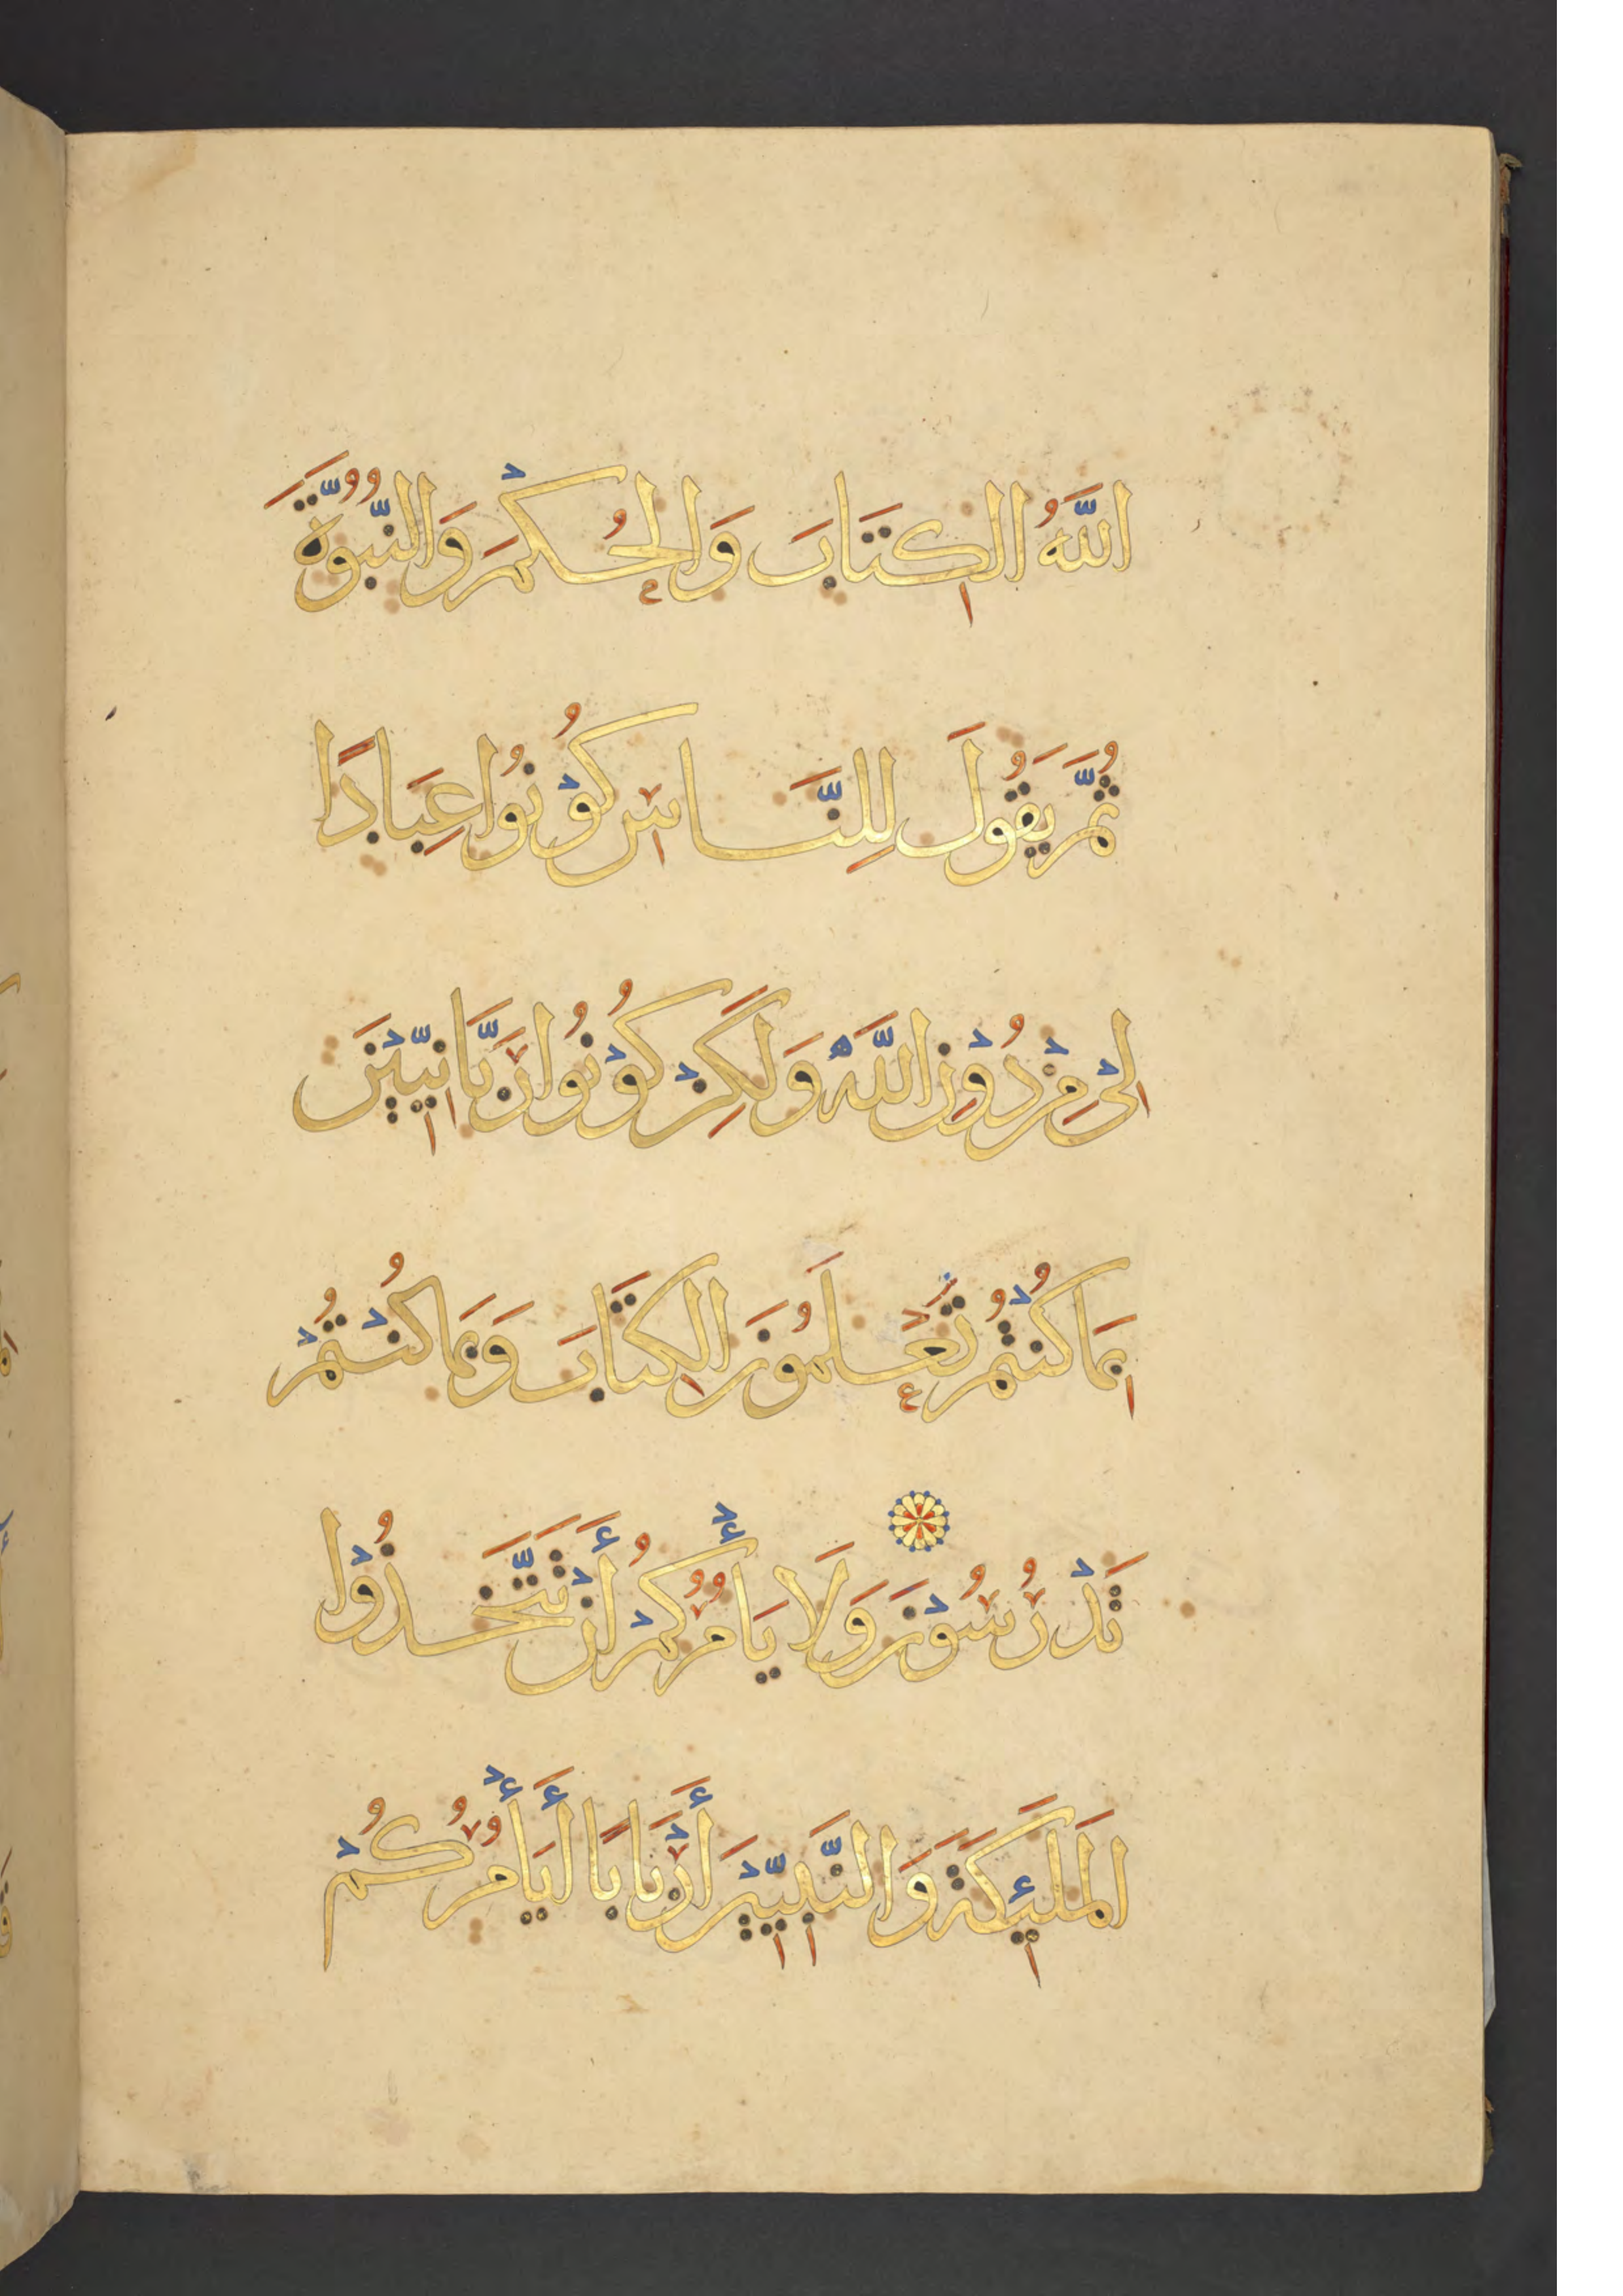 اللَّهُ الكِتَابَ وَالحُكْمَ وَالنُّبُوَّةَ
ثُمَّ يَقُولَ لِلنَّاسِ كُوْنُوا عِبَادًا
لِيْ مِنْ دُوْنِ اللَّهِ وَلَكِنْ كُوْنُوا رَبَّانِيِّيْنَ
بِمَا كُنْتُمْ تَعْلَمُونَ الكِتَابَ وَبِمَا كُنْتُمْ
تَدْرُسُوْنَ وَلَا يَأْمُرُكُمْ أَنْ تَتَّخِذُوْا
المَلَئِكَةَ وَالنَّبِيِّيْنَ أَرْبَابًا أَيَأْمُرُكُمْ